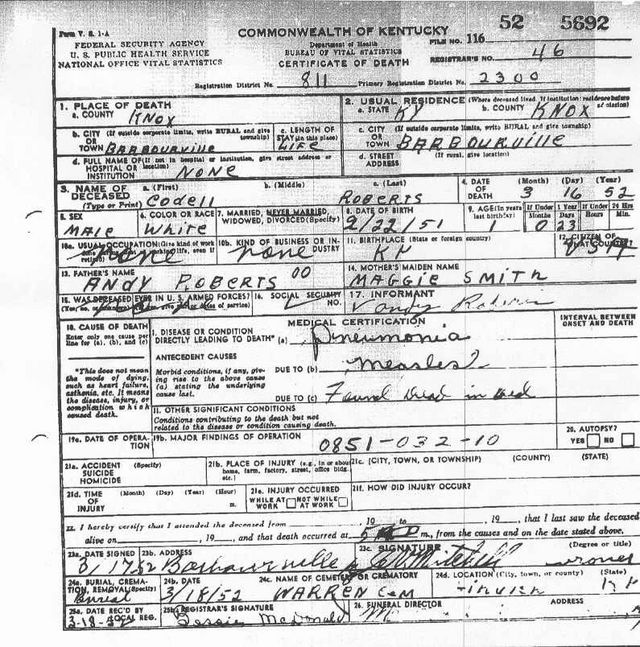 Form V. S. 1-A
COMMONWEALTH OF KENTUCKY 52 5692
FEDERAL SECURITY AGENCY
U. S. PUBLIC HEALTH SERVICE
NATIONAL OFFICE VITAL STATISTICS
Department of Health
BUREAU OF VITAL STATISTICS
CERTIFICATE OF DEATH
FILE NO. 116
REGISTRAR'S NO. 46
Registration District No. 811 Primary Registration District No. 2300
1. PLACE OF DEATH
a. COUNTY KNOX
2. USUAL RESIDENCE (Where deceased lived. If institution: residence before admission)
a. STATE KY b. COUNTY KNOX
b. CITY (If outside corporate limits, write RURAL and give township) OR TOWN BARBOURVILLE
c. LENGTH OF STAY (in this place) LIFE
c. CITY (If outside corporate limits, write RURAL and give township) OR TOWN BARBOURVILLE
d. FULL NAME OF (If not in hospital or institution, give street address or location) HOSPITAL OR INSTITUTION NONE
d. STREET ADDRESS (If rural, give location)
3. NAME OF DECEASED (Type or Print) a. (First) Codell b. (Middle) c. (Last) ROBERTS
4. DATE OF DEATH (Month) (Day) (Year) 3 16 52
5. SEX MALE
6. COLOR OR RACE White
7. MARRIED, NEVER MARRIED, WIDOWED, DIVORCED (Specify)
8. DATE OF BIRTH 2/22/51
9. AGE (In years last birthday) 1 If Under 1 Year Months 0 Days 23 If Under 24 Hrs. Hours Min.
10a. USUAL OCCUPATION (Give kind of work done during most of working life, even if retired) none
10b. KIND OF BUSINESS OR INDUSTRY none
11. BIRTHPLACE (State or foreign country) KY
12. CITIZEN OF WHAT COUNTRY?
13. FATHER'S NAME ANDY ROBERTS 00
14. MOTHER'S MAIDEN NAME MAGGIE SMITH
15. WAS DECEASED EVER IN U. S. ARMED FORCES?
16. SOCIAL SECURITY NO.
17. INFORMANT
18. CAUSE OF DEATH
Enter only one cause per line for (a), (b), and (c)
MEDICAL CERTIFICATION
INTERVAL BETWEEN ONSET AND DEATH
I. DISEASE OR CONDITION DIRECTLY LEADING TO DEATH* (a) Pneumonia
*This does not mean the mode of dying, such as heart failure, asthenia, etc. It means the disease, injury, or complication which caused death.
ANTECEDENT CAUSES
Morbid conditions, if any, giving rise to the above cause (a) stating the underlying cause last.
DUE TO (b) Measles
DUE TO (c) Found Dead in Bed
II. OTHER SIGNIFICANT CONDITIONS
Conditions contributing to the death but not related to the disease or condition causing death.
19a. DATE OF OPERATION
19b. MAJOR FINDINGS OF OPERATION
0851-032-10
20. AUTOPSY?
YES NO
21a. ACCIDENT (Specify) SUICIDE HOMICIDE
21b. PLACE OF INJURY (e.g., in or about home, farm, factory, street, office bldg. etc.)
21c. (CITY, TOWN, OR TOWNSHIP) (COUNTY) (STATE)
21d. TIME OF INJURY (Month) (Day) (Year) (Hour) m.
21e. INJURY OCCURRED WHILE AT WORK NOT WHILE AT WORK
21f. HOW DID INJURY OCCUR?
22. I hereby certify that I attended the deceased from , 19 to , 19 , that I last saw the deceased
alive on , 19 , and that death occurred at m., from the causes and on the date stated above.
23a. DATE SIGNED 3/17/52
23b. ADDRESS Barbourville
23c. SIGNATURE (Degree or title) Coroner
24a. BURIAL, CREMATION, REMOVAL (Specify) Burial
24b. DATE 3/18/52
24c. NAME OF CEMETERY OR CREMATORY WARREN CEM
24d. LOCATION (City, town, or county) (State)
25a. DATE REC'D BY LOCAL REG.
25b. REGISTRAR'S SIGNATURE Bessie McDonald
26. FUNERAL DIRECTOR ADDRESS